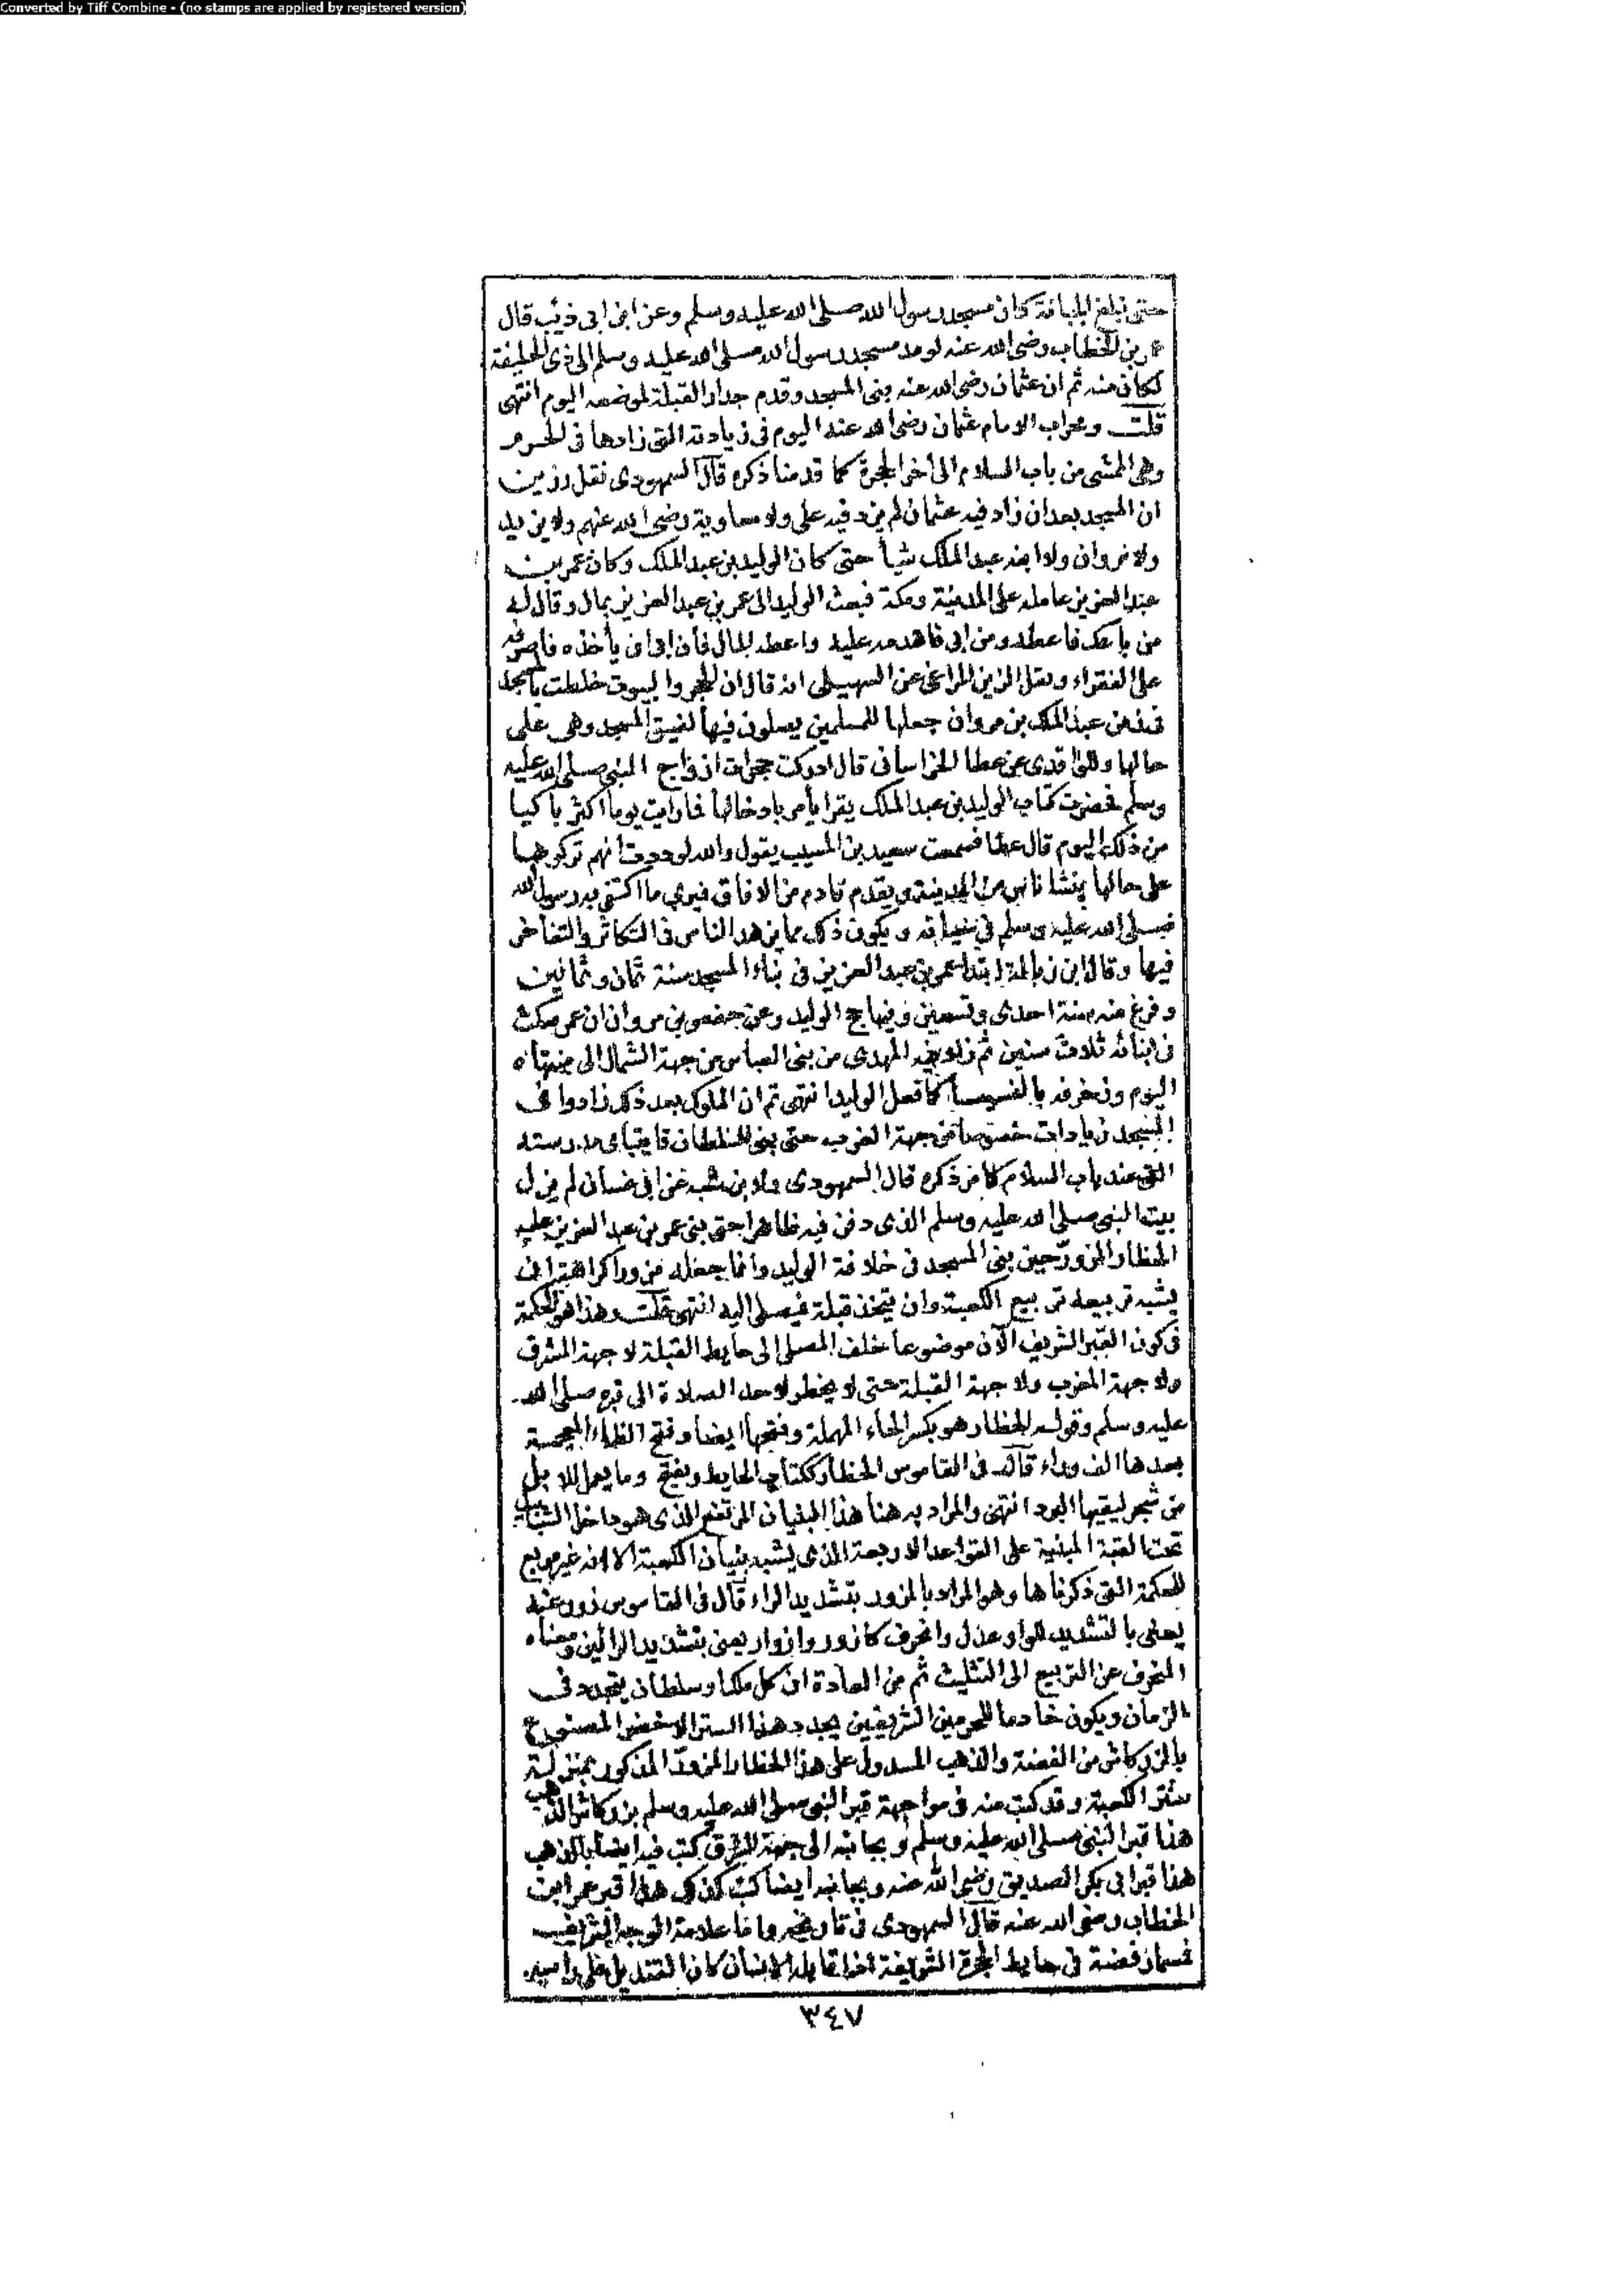 Converted by Tiff Combine - (no stamps are applied by registered version)
حتى نبلغ الجبانة كان مسجد رسول الله صلى الله عليه وسلم وعن ابن ابى ذئب قال
عمر بن الخطاب رضى الله عنه لو مد مسجد رسول الله صلى الله عليه وسلم الى ذى الحليفة
لكان منه ثم ان عثمان رضى الله عنه بنى المسجد وقدم جدار القبلة لموضعه اليوم انتهى
قلت ومحراب الامام عثمان رضى الله عنه اليوم فى زيادته التى زادها فى الحرم
وهى الممشى من باب السلام الى أخر الحجرة كما قدمنا ذكره قال السمهودى نقل رزين
ان المسجد بعد ان زاد فيه عثمان لم يزد فيه على ولا معاوية رضى الله عنهم ولا يزيد
ولا مروان ولا ابنه عبد الملك شيأ حتى كان الوليد بن عبد الملك وكان عمر بن
عبد العزيز عامله على المدينة ومكة فبعث الوليد الى عمر بن عبد العزيز بمال وقال له
من باعك فاعطه ومن ابى فاهدم عليه واعطه المال فأن ابى ان يأخذه فاصرفه
على الفقراء ونقل الزين المراغى عن السهيلى انه قال ان الحجر والبيوت خلطت بالمسجد
فى زمن عبد الملك بن مروان جعلها للمسلمين يصلون فيها لضيق المسجد وهى على
حالها وللواقدى عن عطا الخراسانى قال ادركت حجرات ازواج النبى صلى الله عليه
وسلم فحضرت كتاب الوليد بن عبد الملك يقرا يأمر بادخالها فما رايت يوما اكثر باكيا
من ذلك اليوم قال عطا فسمعت سعيد بن المسيب يقول والله لوددت انهم تركوها
على حالها ينشا ناس من المدينة ويقدم قادم من الافاق فيرى ما اكتفى به رسول الله
صلى الله عليه وسلم فى حياته ويكون ذلك مما يزهد الناس فى التكاثر والتفاخر
فيها وقال ابن زبالة ابتدا عمر بن عبد العزيز فى بناء المسجد سنة ثمان وثمانين
وفرغ منه سنة احدى وتسعين وفيها حج الوليد وعن جعفر بن مروان ان عمر مكث
فى ابنائه ثلاث سنين ثم زاد فيه المهدى من بنى العباس من جهة الشمال الى منتهاه
اليوم وزخرفه بالفسيفسا كما فعل الوليد انتهى ثم ان الملوك بعد ذلك زادوا فى
المسجد زيادات خصوصا من جهة الغرب حتى بنى السلطان قايتباى مدرسته
التى عند باب السلام كما مر ذكره قال السمهودى ولابن شبه عن ابى غسان لم يزل
بيت النبى صلى الله عليه وسلم الذى دفن فيه ظاهرا حتى بنى عمر بن عبد العزيز عليه
الحظار المزور حين بنى المسجد فى خلافة الوليد وانما جعله مزورا كراهة ان
يشبه تربيعه تربيع الكعبة وان يتخذ قبلة فيصلى اليه انتهى قلت وهذا هو الحكمة
فى كون القبر الشريف الآن موضوعا خلف المصلى الى حايط القبلة لا جهة المشرق
ولا جهة المغرب ولا جهة القبلة حتى لا يخطر لاحد الصلاة الى قبره صلى الله
عليه وسلم وقوله الحظار هو بكسر الحاء المهملة وفتحها ايضا وفتح الظاء المعجمة
بعدها الف وراء قال فى القاموس الحظار ككتاب الحايط ويفتح وما يعمل للابل
من شجر ليقيها البرد انتهى والمراد به هنا هذا البنيان المرتفع الذى هو داخل الشبابيك
تحت القبة المبنية على القواعد الاربعة الذى يشبه بنيان الكعبة الا انه غير مربع
للحكمة التى ذكرناها وهو المراد بالمزور بتشديد الراء قال فى القاموس زور عنه
يعنى بالتشديد للواو عدل وانحرف كازور وازوار يعنى بتشديد الرائين ومعناه
المنحرف عن التربيع الى التثليث ثم من العادة ان كل ملك او سلطان يتجدد فى
الزمان ويكون خادما للحرمين الشريفين يجدد هذا الستر الاخضر المصنوع
بالزركاش من الفضة والذهب المسدول على هذا الحظار المزور المذكور بمنزلة
ستر الكعبة وقد كتب منه فى مواجهة قبر النبى صلى الله عليه وسلم بزركاش الذهب
هذا قبر النبى صلى الله عليه وسلم وبجانبه الى جهة الشرق كتب فيه ايضا بالذهب
هذا قبر ابى بكر الصديق رضى الله عنه وبجانبه ايضا كتب كذلك هذا قبر عمر ابن
الخطاب رضى الله عنه قال السمهودى فى تاريخه واما علامة الوجه الشريف
فمسمار فضة فى حايط الحجرة الشريفة اذا قابله الانسان كان القنديل على راسه.
٣٤٧